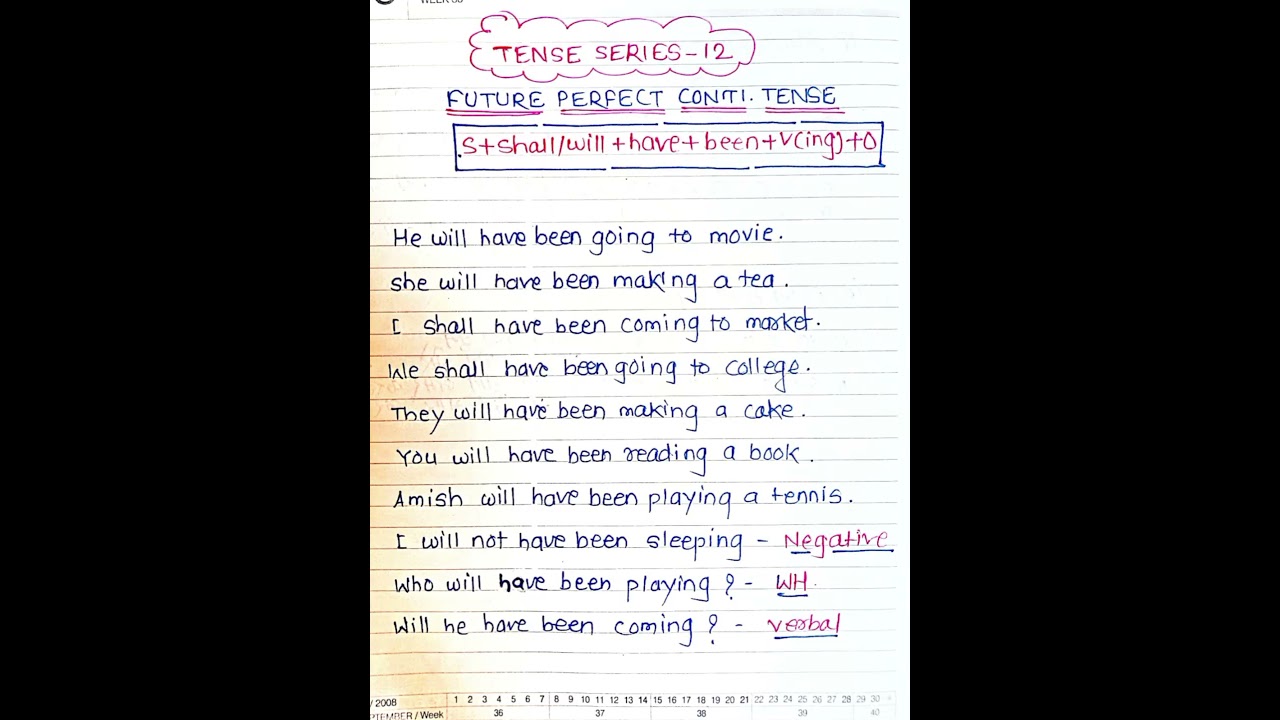 TENSE SERIES-12
FUTURE PERFECT CONTI. TENSE
S+shall/will+have+been+V(ing)+O
He will have been going to movie.
she will have been making a tea.
I shall have been coming to market.
We shall have been going to college.
They will have been making a cake.
You will have been reading a book.
Amish will have been playing a tennis.
I will not have been sleeping - Negative
Who will have been playing? - WH.
Will he have been coming? - verbal
/ 2008 1 2 3 4 5 6 7 8 9 10 11 12 13 14 15 16 17 18 19 20 21 22 23 24 25 26 27 28 29 30
PTEMBER / Week 36 37 38 39 40